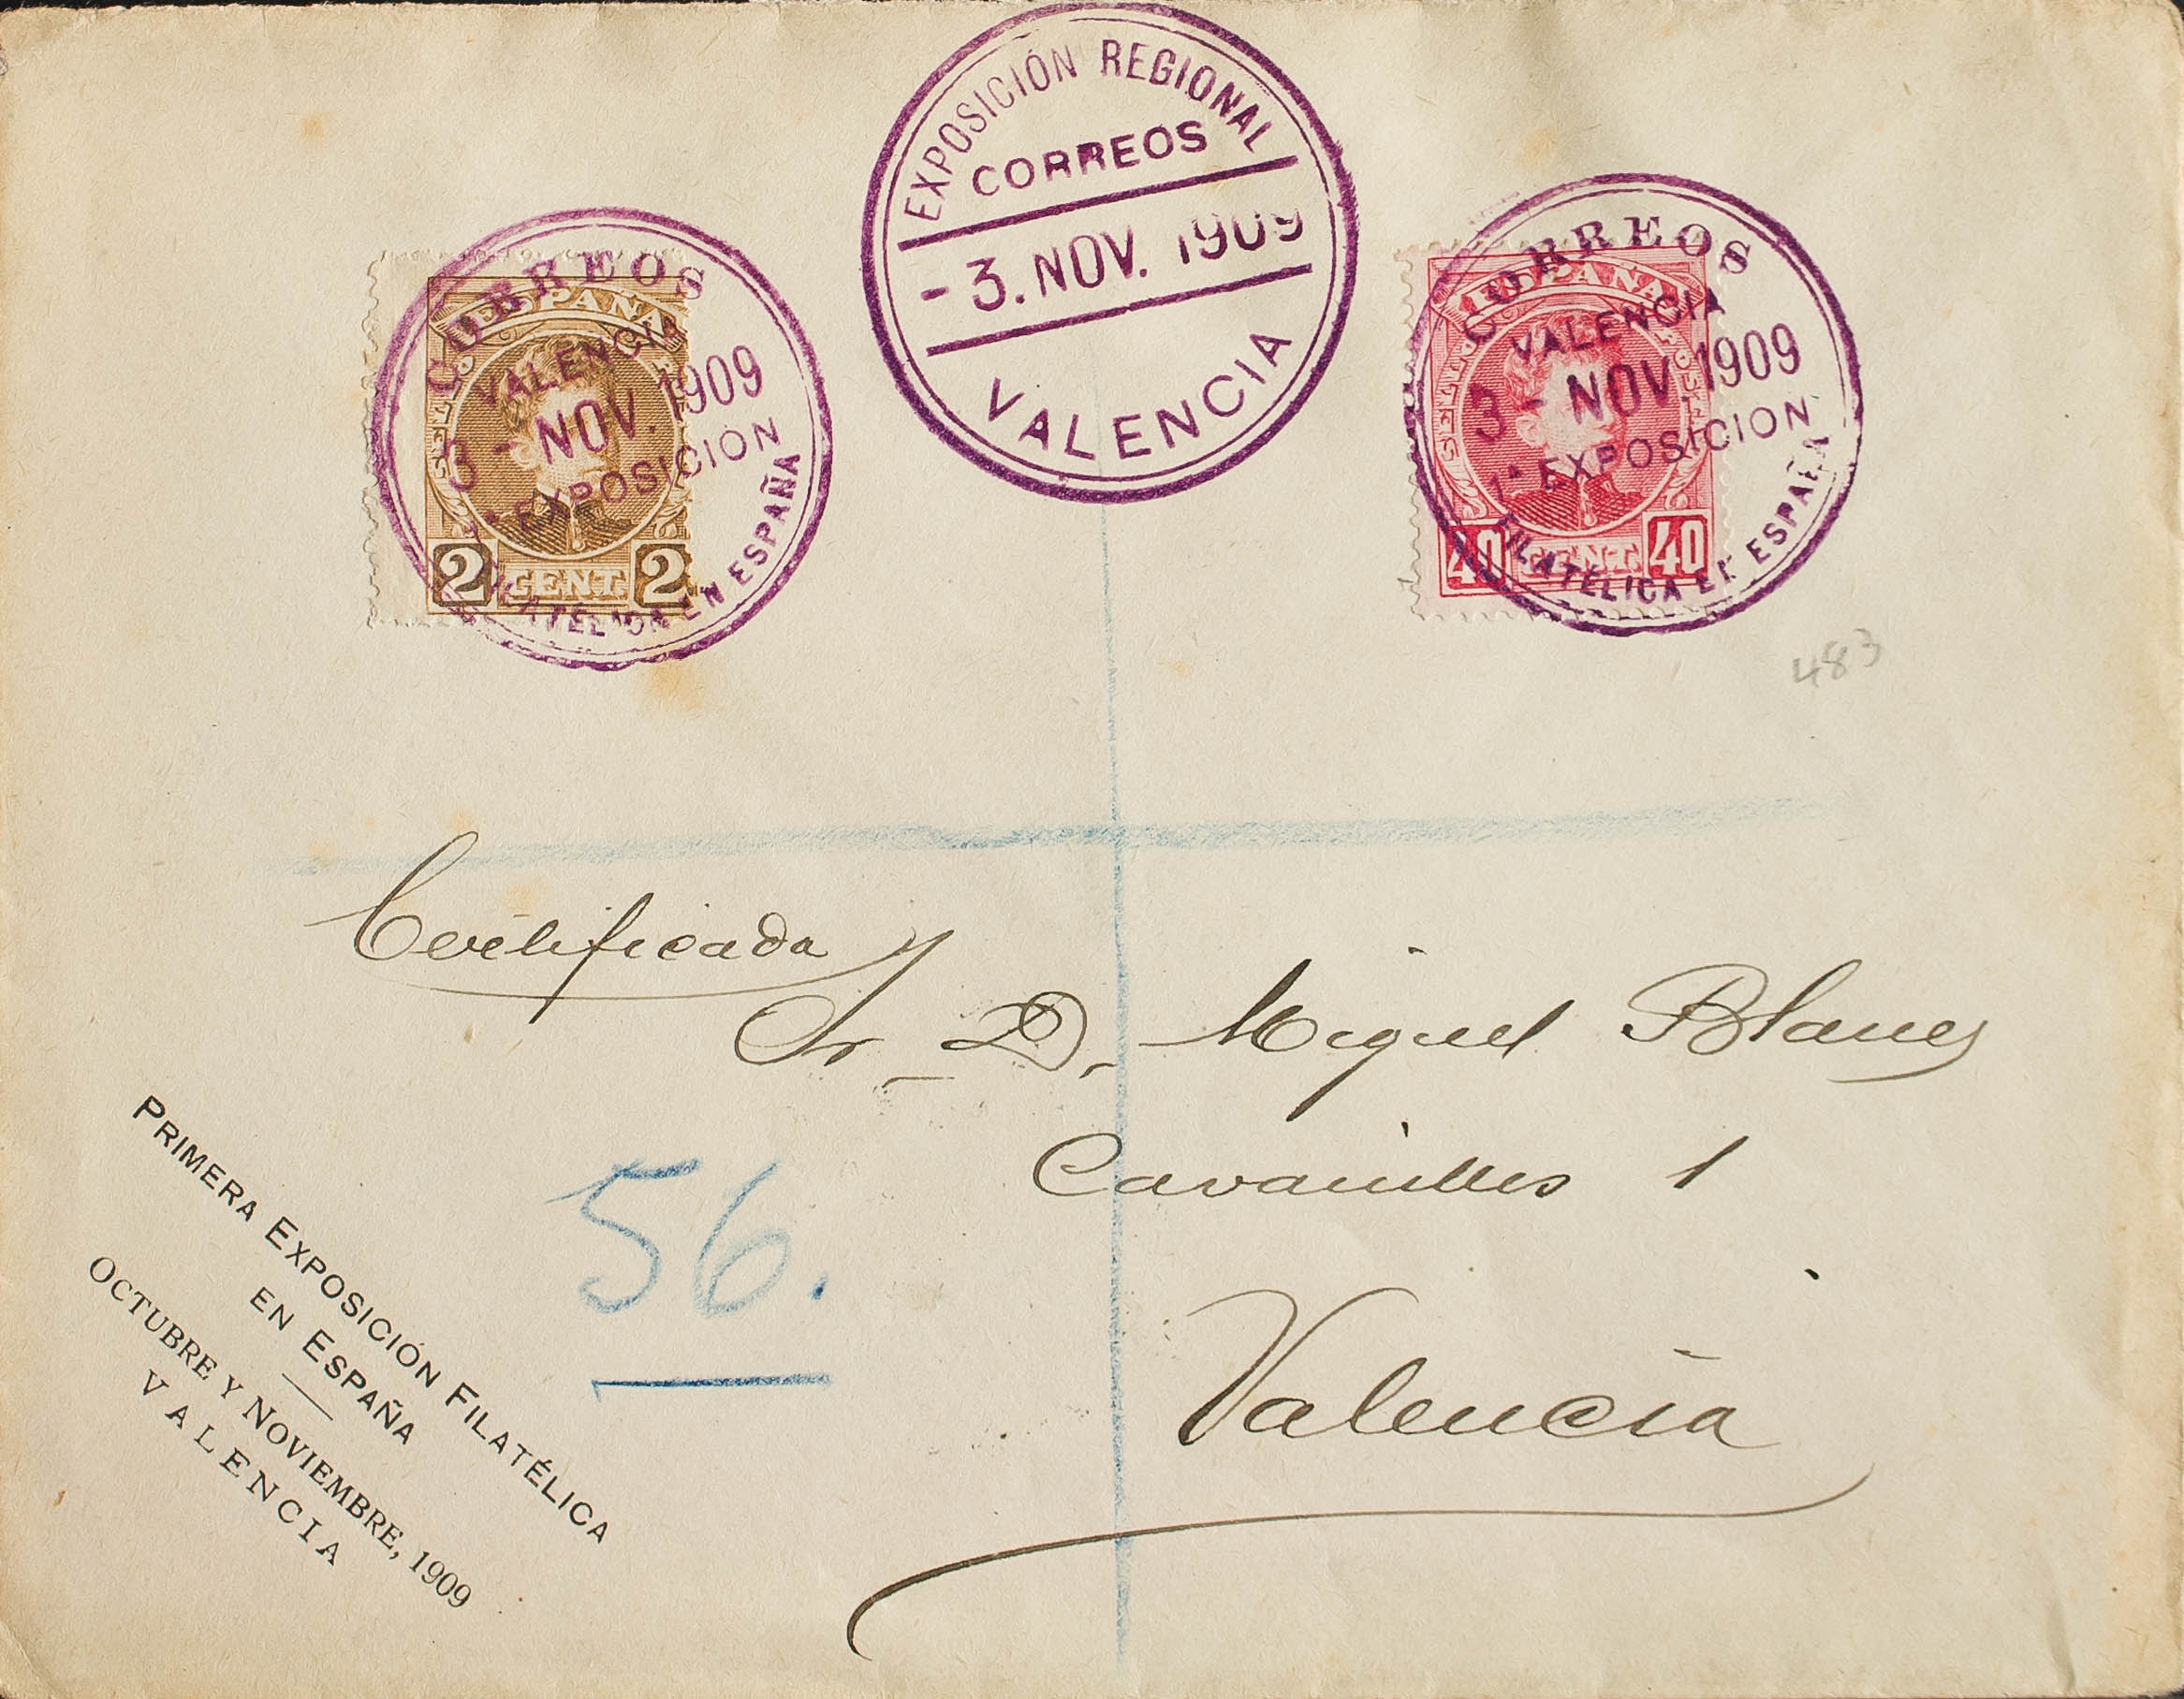 EXPOSICIÓN REGIONAL
CORREOS
- 3. NOV. 1909
VALENCIA
CORREOS
VALENCIA
3 - NOV. 1909
1ª EXPOSICION
FILATÉLICA EN ESPAÑA
ESPAÑA
2 CENT. 2
CORREOS
VALENCIA
3 - NOV. 1909
1ª EXPOSICION
FILATÉLICA EN ESPAÑA
ESPAÑA
40 CENT. 40
483
Certificada
Sr. D. Miguel Blanes
Cavanilles 1
Valencia
56.
PRIMERA EXPOSICIÓN FILATÉLICA
EN ESPAÑA
OCTUBRE Y NOVIEMBRE, 1909
VALENCIA